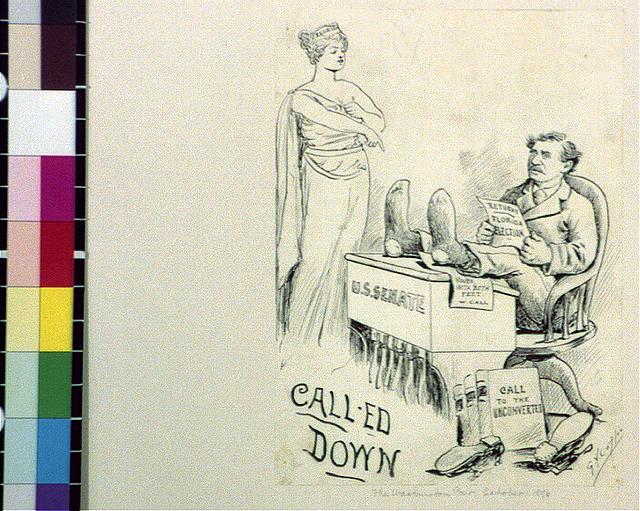 RETURNS
FLORIDA
ELECTION
U.S. SENATE
WITH BOTH
FEET
W. CALL
CALL
TO THE
UNCONVERTED
CALL-ED
DOWN
The Washington Post, October 1896